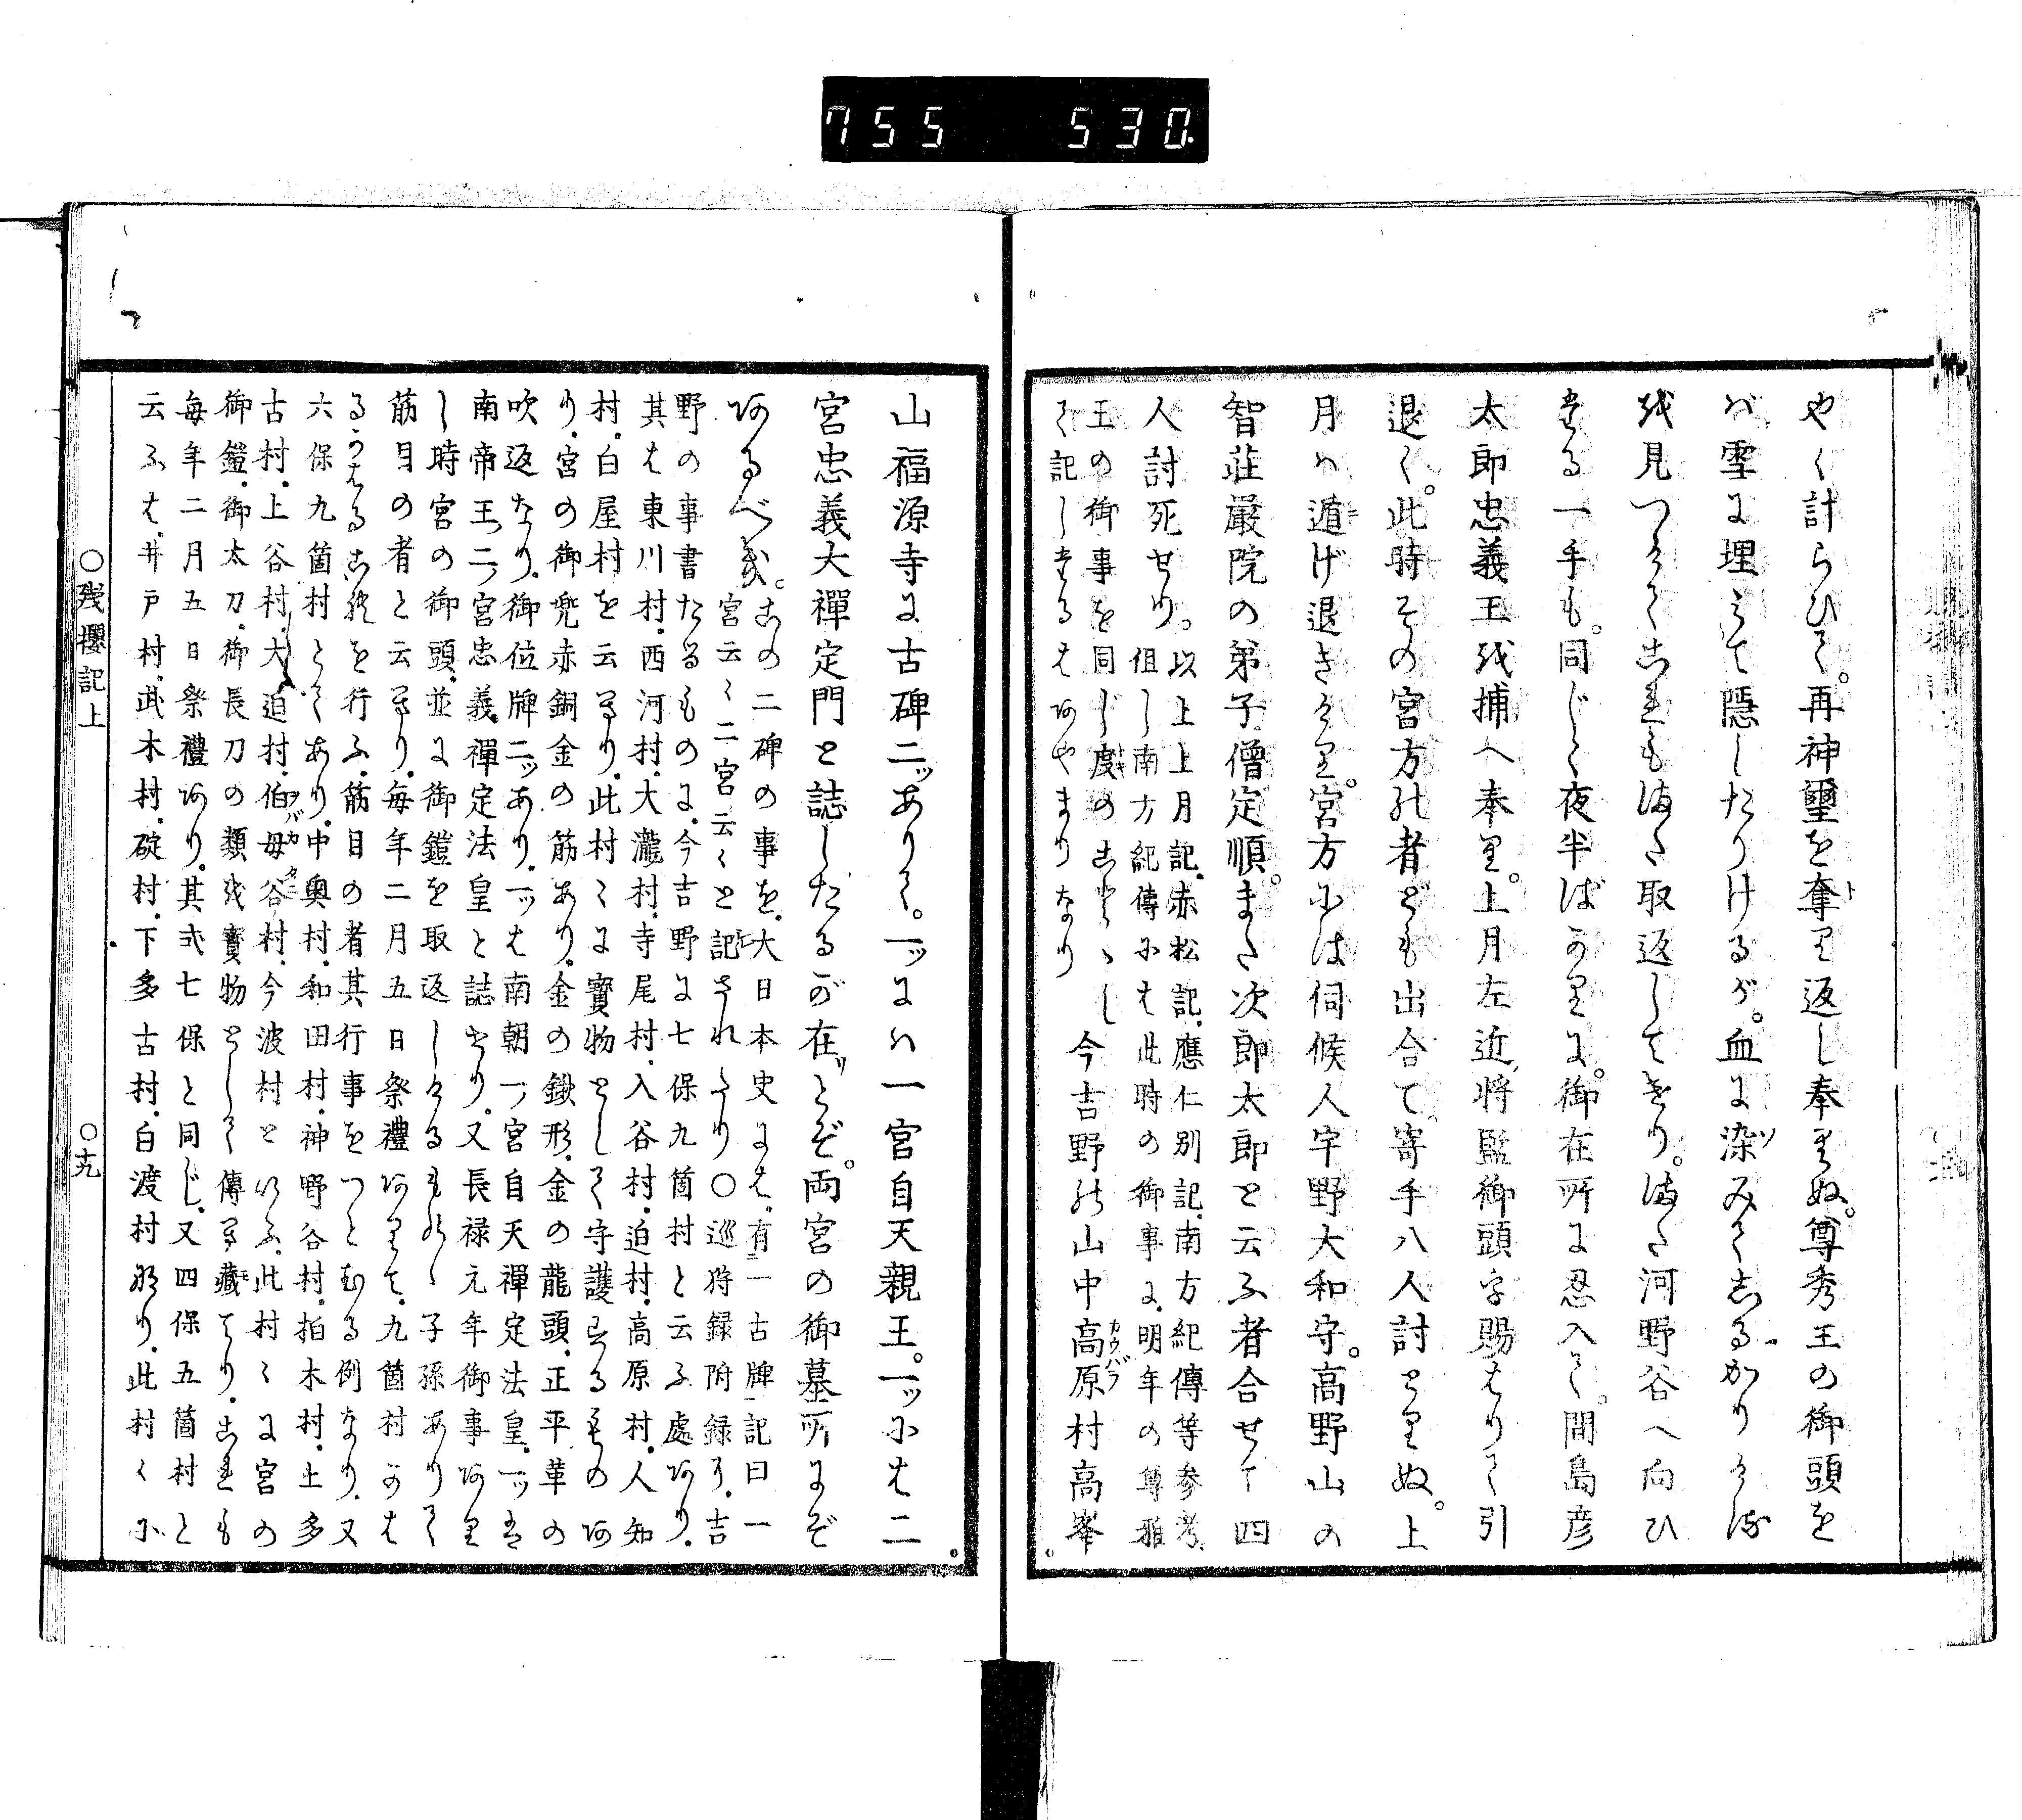 755 530
やく計らひて。再神璽を奪り返し奉りぬ。尊秀王の御頭を
ば雪に埋みて隠したりけるが。血に染みてしるかりければ
見つけてこれもはた取返してけり。はた河野谷へ向ひ
たる一手も。同じく夜半ばかりに。御在所に忍入て。間島彦
太郎忠義王を捕へ奉り。上月左近将監御頭を賜はりて引
退く。此時その宮方の者ども出合て。寄手八人討とりぬ。上
月は遁げ退きけり。宮方には伺候人宇野大和守。高野山の
智莊嚴院の弟子僧定順。また次郎太郎と云ふ者合せて四
人討死せり。
以上上月記、赤松記、應仁別記、南方紀傳等参考、
但し南方紀傳には此時の御事に、明年の尊雅
王の御事を同じ度のことゝし
て記したるはあやまりなり
今吉野の山中高原村高峯
山福源寺に古碑二ッありて。一ッには一宮自天親王。一ッには二
宮忠義大禪定門と誌したるが在りとぞ。両宮の御墓所にぞ
あるべき。
この二碑の事を、大日本史には、有一古牌記曰一
宮云々二宮云々と記されたり〇巡狩録附録に、吉
野の事書たるものに、今吉野に七保九箇村と云ふ處あり、
其は東川村、西河村、大瀧村、寺尾村、入谷村、迫村、高原村、人知
村、白屋村を云なり、此村々に寳物として守護するものあ
り、宮の御兜赤銅金の筋あり、金の鍬形、金の龍頭、正平革の
吹返なり、御位牌二ッあり、一ッは南朝一ノ宮自天禪定法皇、一ッは
南帝王二ノ宮忠義禪定法皇と誌せり、又長禄元年御事あり
し時宮の御頭、並に御鎧を取返しけるものゝ子孫ありて
筋目の者と云なり、毎年二月五日祭禮ありて、九箇村かは
るかはる是を行ふ、筋目の者其行事をつとむる例なり、又
六保九箇村とてあり、中奥村、和田村、神野谷村、柏木村、上多
古村、上谷村、大迫村、伯母谷村、今波村といふ、此村々に宮の
御鎧、御太刀、御長刀の類を寳物として傳な藏せり、これも
毎年二月五日祭禮あり、其式七保と同じ、又四保五箇村と
云ふは、井戸村、武木村、碇村、下多古村、白渡村なり、此村々に
〇残櫻記上
〇十九